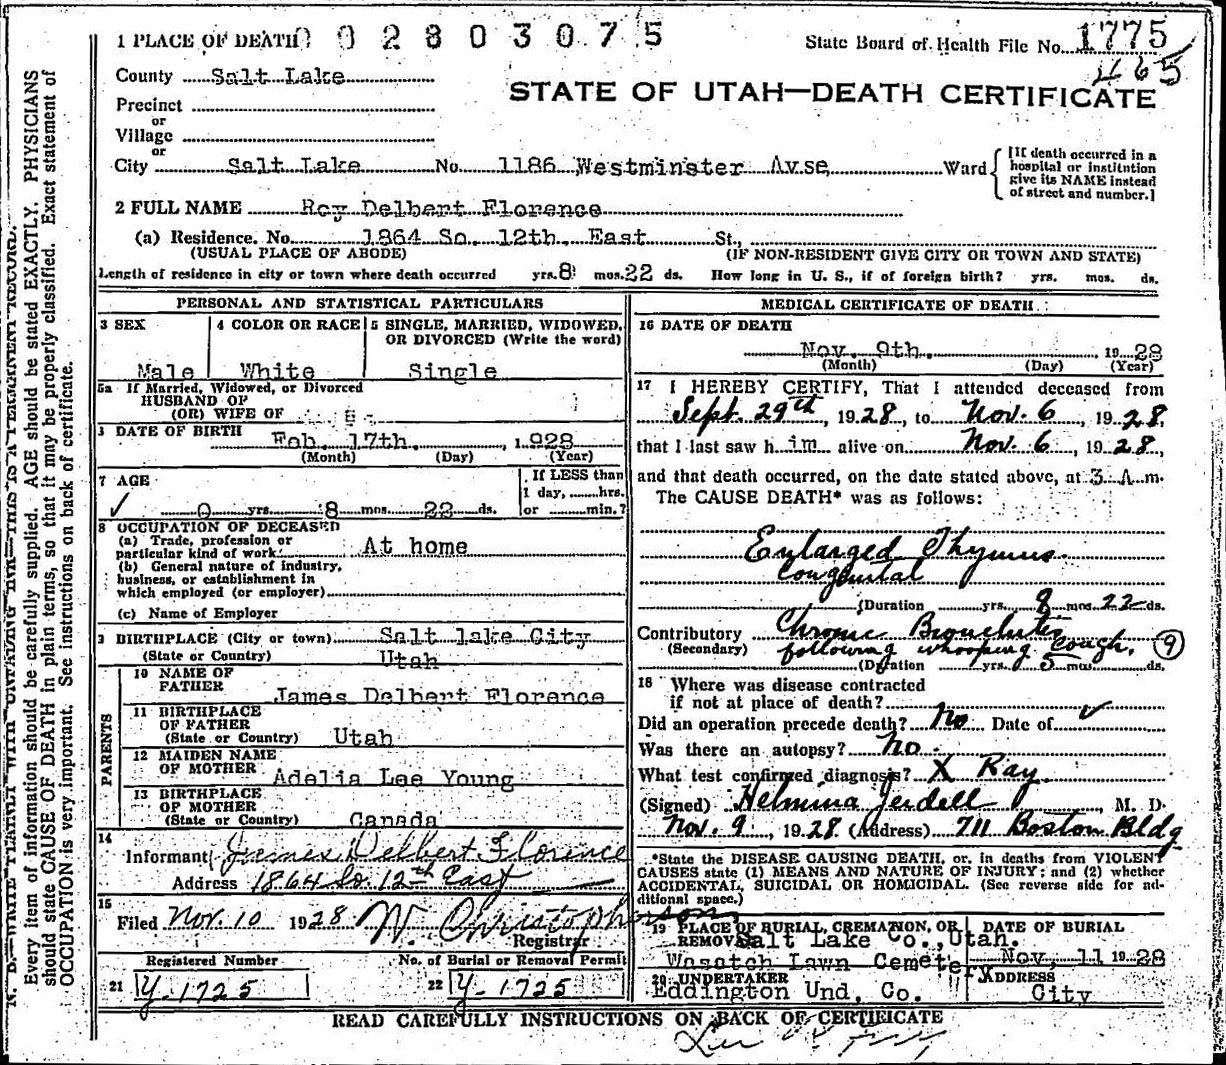 1 PLACE OF DEATH 0 0 2 8 0 3 0 7 5
State Board of Health File No. 1775
465
County Salt Lake
STATE OF UTAH—DEATH CERTIFICATE
Precinct
or
Village
or
City Salt Lake No. 1186 Westminster Av.se Ward
[If death occurred in a hospital or institution give its NAME instead of street and number.]
2 FULL NAME Roy Delbert Florence
(a) Residence. No. 1864 So. 12th. East St.,
(USUAL PLACE OF ABODE) (IF NON-RESIDENT GIVE CITY OR TOWN AND STATE)
Length of residence in city or town where death occurred yrs. 8 mos. 22 ds. How long in U. S., if of foreign birth? yrs. mos. ds.
PERSONAL AND STATISTICAL PARTICULARS
3 SEX
Male
4 COLOR OR RACE
White
5 SINGLE, MARRIED, WIDOWED, OR DIVORCED (Write the word)
Single
5a If Married, Widowed, or Divorced
HUSBAND OF
(OR) WIFE OF
DATE OF BIRTH Feb. 17th. , 1928
(Month) (Day) (Year)
7 AGE
0 yrs. 8 mos. 22 ds.
If LESS than
1 day, hrs.
or min.?
8 OCCUPATION OF DECEASED
(a) Trade, profession or
particular kind of work At home
(b) General nature of industry,
business, or establishment in
which employed (or employer)
(c) Name of Employer
9 BIRTHPLACE (City or town) Salt lake City
(State or Country) Utah
PARENTS
10 NAME OF
FATHER James Delbert Florence
11 BIRTHPLACE
OF FATHER
(State or Country) Utah
12 MAIDEN NAME
OF MOTHER Adelia Lee Young
13 BIRTHPLACE
OF MOTHER
(State or Country) Canada
14
Informant James Delbert Florence
Address 1864 So. 12th East
15
Filed Nov. 10 1928 W. Christopherson
Registrar
Registered Number
21 Y-1725
No. of Burial or Removal Permit
22 Y-1725
MEDICAL CERTIFICATE OF DEATH
16 DATE OF DEATH
Nov. 9th. , 1928
(Month) (Day) (Year)
17 I HEREBY CERTIFY, That I attended deceased from
Sept. 29th, 1928, to Nov. 6, 1928,
that I last saw h im alive on Nov. 6, 1928,
and that death occurred, on the date stated above, at 3 A m.
The CAUSE DEATH* was as follows:
Enlarged Thymus
Congenital
(Duration yrs. 8 mos. 22 ds.
Contributory Chronic Bronchitis
(Secondary) following whooping cough. 9
(Duration yrs. 5 mos. ds.
18 Where was disease contracted
if not at place of death?
Did an operation precede death? No Date of
Was there an autopsy? no.
What test confirmed diagnosis? X Ray
(Signed) Helmina Jeidell, M. D.
Nov. 9, 1928 (Address) 711 Boston Bldg
*State the DISEASE CAUSING DEATH, or, in deaths from VIOLENT
CAUSES state (1) MEANS AND NATURE OF INJURY; and (2) whether
ACCIDENTAL, SUICIDAL OR HOMICIDAL. (See reverse side for additional space.)
19 PLACE OF BURIAL, CREMATION, OR
REMOVAL Salt Lake Co., Utah.
Wasatch Lawn Cemetery
DATE OF BURIAL
Nov, 11 1928
20 UNDERTAKER
Eddington Und, Co.
ADDRESS
City
READ CAREFULLY INSTRUCTIONS ON BACK OF CERTIFICATE
N. B.—WRITE PLAINLY WITH UNFADING INK—THIS IS A PERMANENT RECORD.
Every item of information should be carefully supplied. AGE should be stated EXACTLY. PHYSICIANS
should state CAUSE OF DEATH in plain terms, so that it may be properly classified. Exact statement of
OCCUPATION is very important. See instructions on back of certificate.